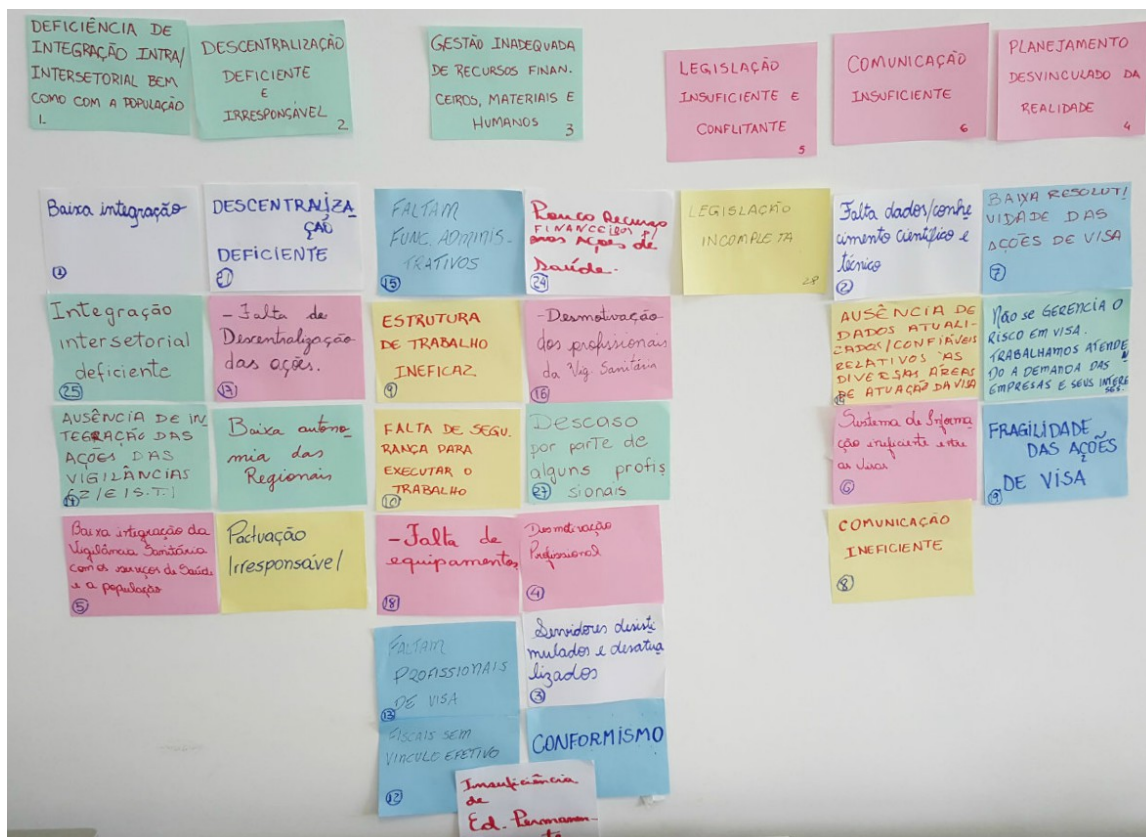 DEFICIÊNCIA DE
INTEGRAÇÃO INTRA/
INTERSETORIAL BEM
COMO COM A POPULAÇÃO
1.
DESCENTRALIZAÇÃO
DEFICIENTE
E
IRRESPONSÁVEL
2
GESTÃO INADEQUADA
DE RECURSOS FINAN-
CEIROS, MATERIAIS E
HUMANOS
3
LEGISLAÇÃO
INSUFICIENTE E
CONFLITANTE
5
COMUNICAÇÃO
INSUFICIENTE
6
PLANEJAMENTO
DESVINCULADO DA
REALIDADE
4
Baixa integração
Integração
intersetorial
deficiente
25
AUSÊNCIA DE IN
TEGRAÇÃO DAS
AÇÕES DAS
VIGILÂNCIAS
Baixa integração da
Vigilância Sanitária
com os serviços de Saúde
e a população
5
DESCENTRALIZA-
ÇÃO
DEFICIENTE
21
-Falta de
Descentralização
das ações.
17
Baixa autono-
mia das
Regionais
Pactuação
Irresponsável
FALTAM
FUNC. ADMINIS-
TRATIVOS
15
ESTRUTURA
DE TRABALHO
INEFICAZ
9
FALTA DE SEGU-
RANÇA PARA
EXECUTAR O
TRABALHO
10
-Falta de
equipamentos
18
FALTAM
PROFISSIONAIS
DE VISA
13
FISCAIS SEM
VINCULO EFETIVO
12
Pouco Recurso
FINANCEIROS p/
Ações de
Saúde.
24
-Desmotivação
dos profissionais
da Vig. Sanitária
16
Descaso
por parte de
alguns profis
sionais
27
Desmotivação
Profissional
4
Servidores desesti
mulados e desatua
lizados
3
CONFORMISMO
Insuficiência
de
Ed. Permanen-
te
LEGISLAÇÃO
INCOMPLETA
28
Falta dados/conhe
cimento científico e
técnico
2
AUSÊNCIA DE
DADOS ATUALI-
ZADOS/CONFIÁVEIS
RELATIVOS ÀS
DIVERSAS ÁREAS
DE ATUAÇÃO DA VISA
Sistema de Informa
ção ineficiente entre
as visas
6
COMUNICAÇÃO
INEFICIENTE
8
BAIXA RESOLUTI
VIDADE DAS
AÇÕES DE VISA
7
Não se GERENCIA O
RISCO EM VISA.
TRABALHAMOS ATENDEN
DO A DEMANDA DAS
EMPRESAS E SEUS INTERES
SES.
FRAGILIDADE
DAS AÇÕES
DE VISA
19